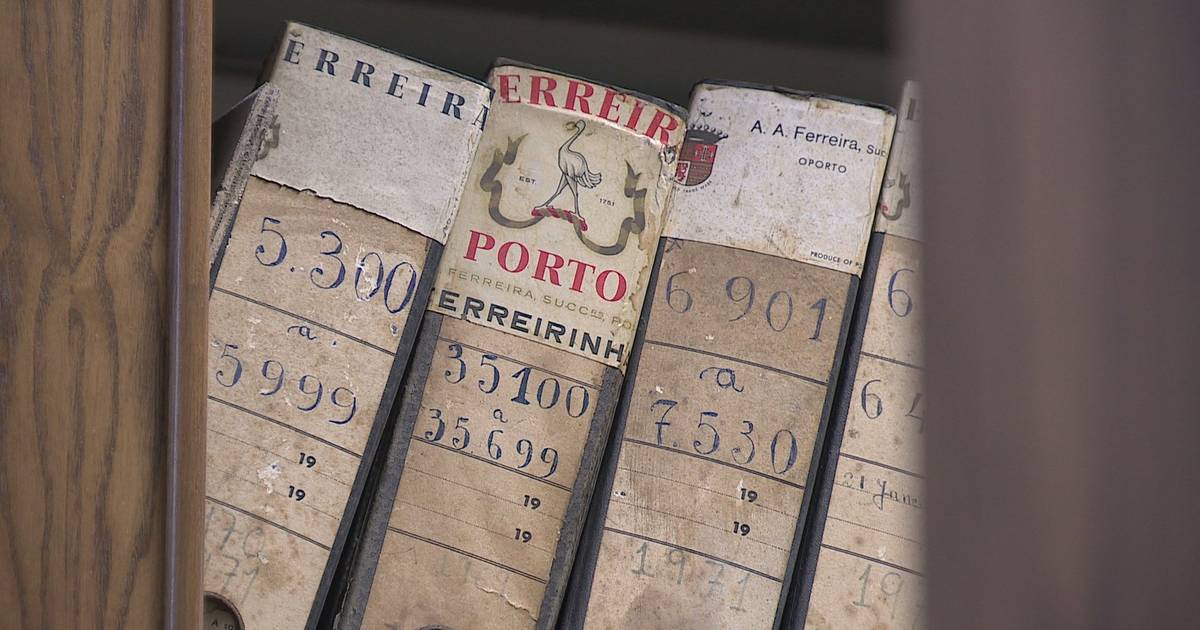 ERREIRA
5.300
a
5999
19
19
71
ERREIR
EST.
1751
PORTO
FERREIRA, SUCCRS PO
ERREIRINH
35100
a
35.699
19
19
A. A. Ferreira, Suc
OPORTO
PRODUCE OF
6 901
a
7.530
19
19
1971
6
6
21 Jan
19